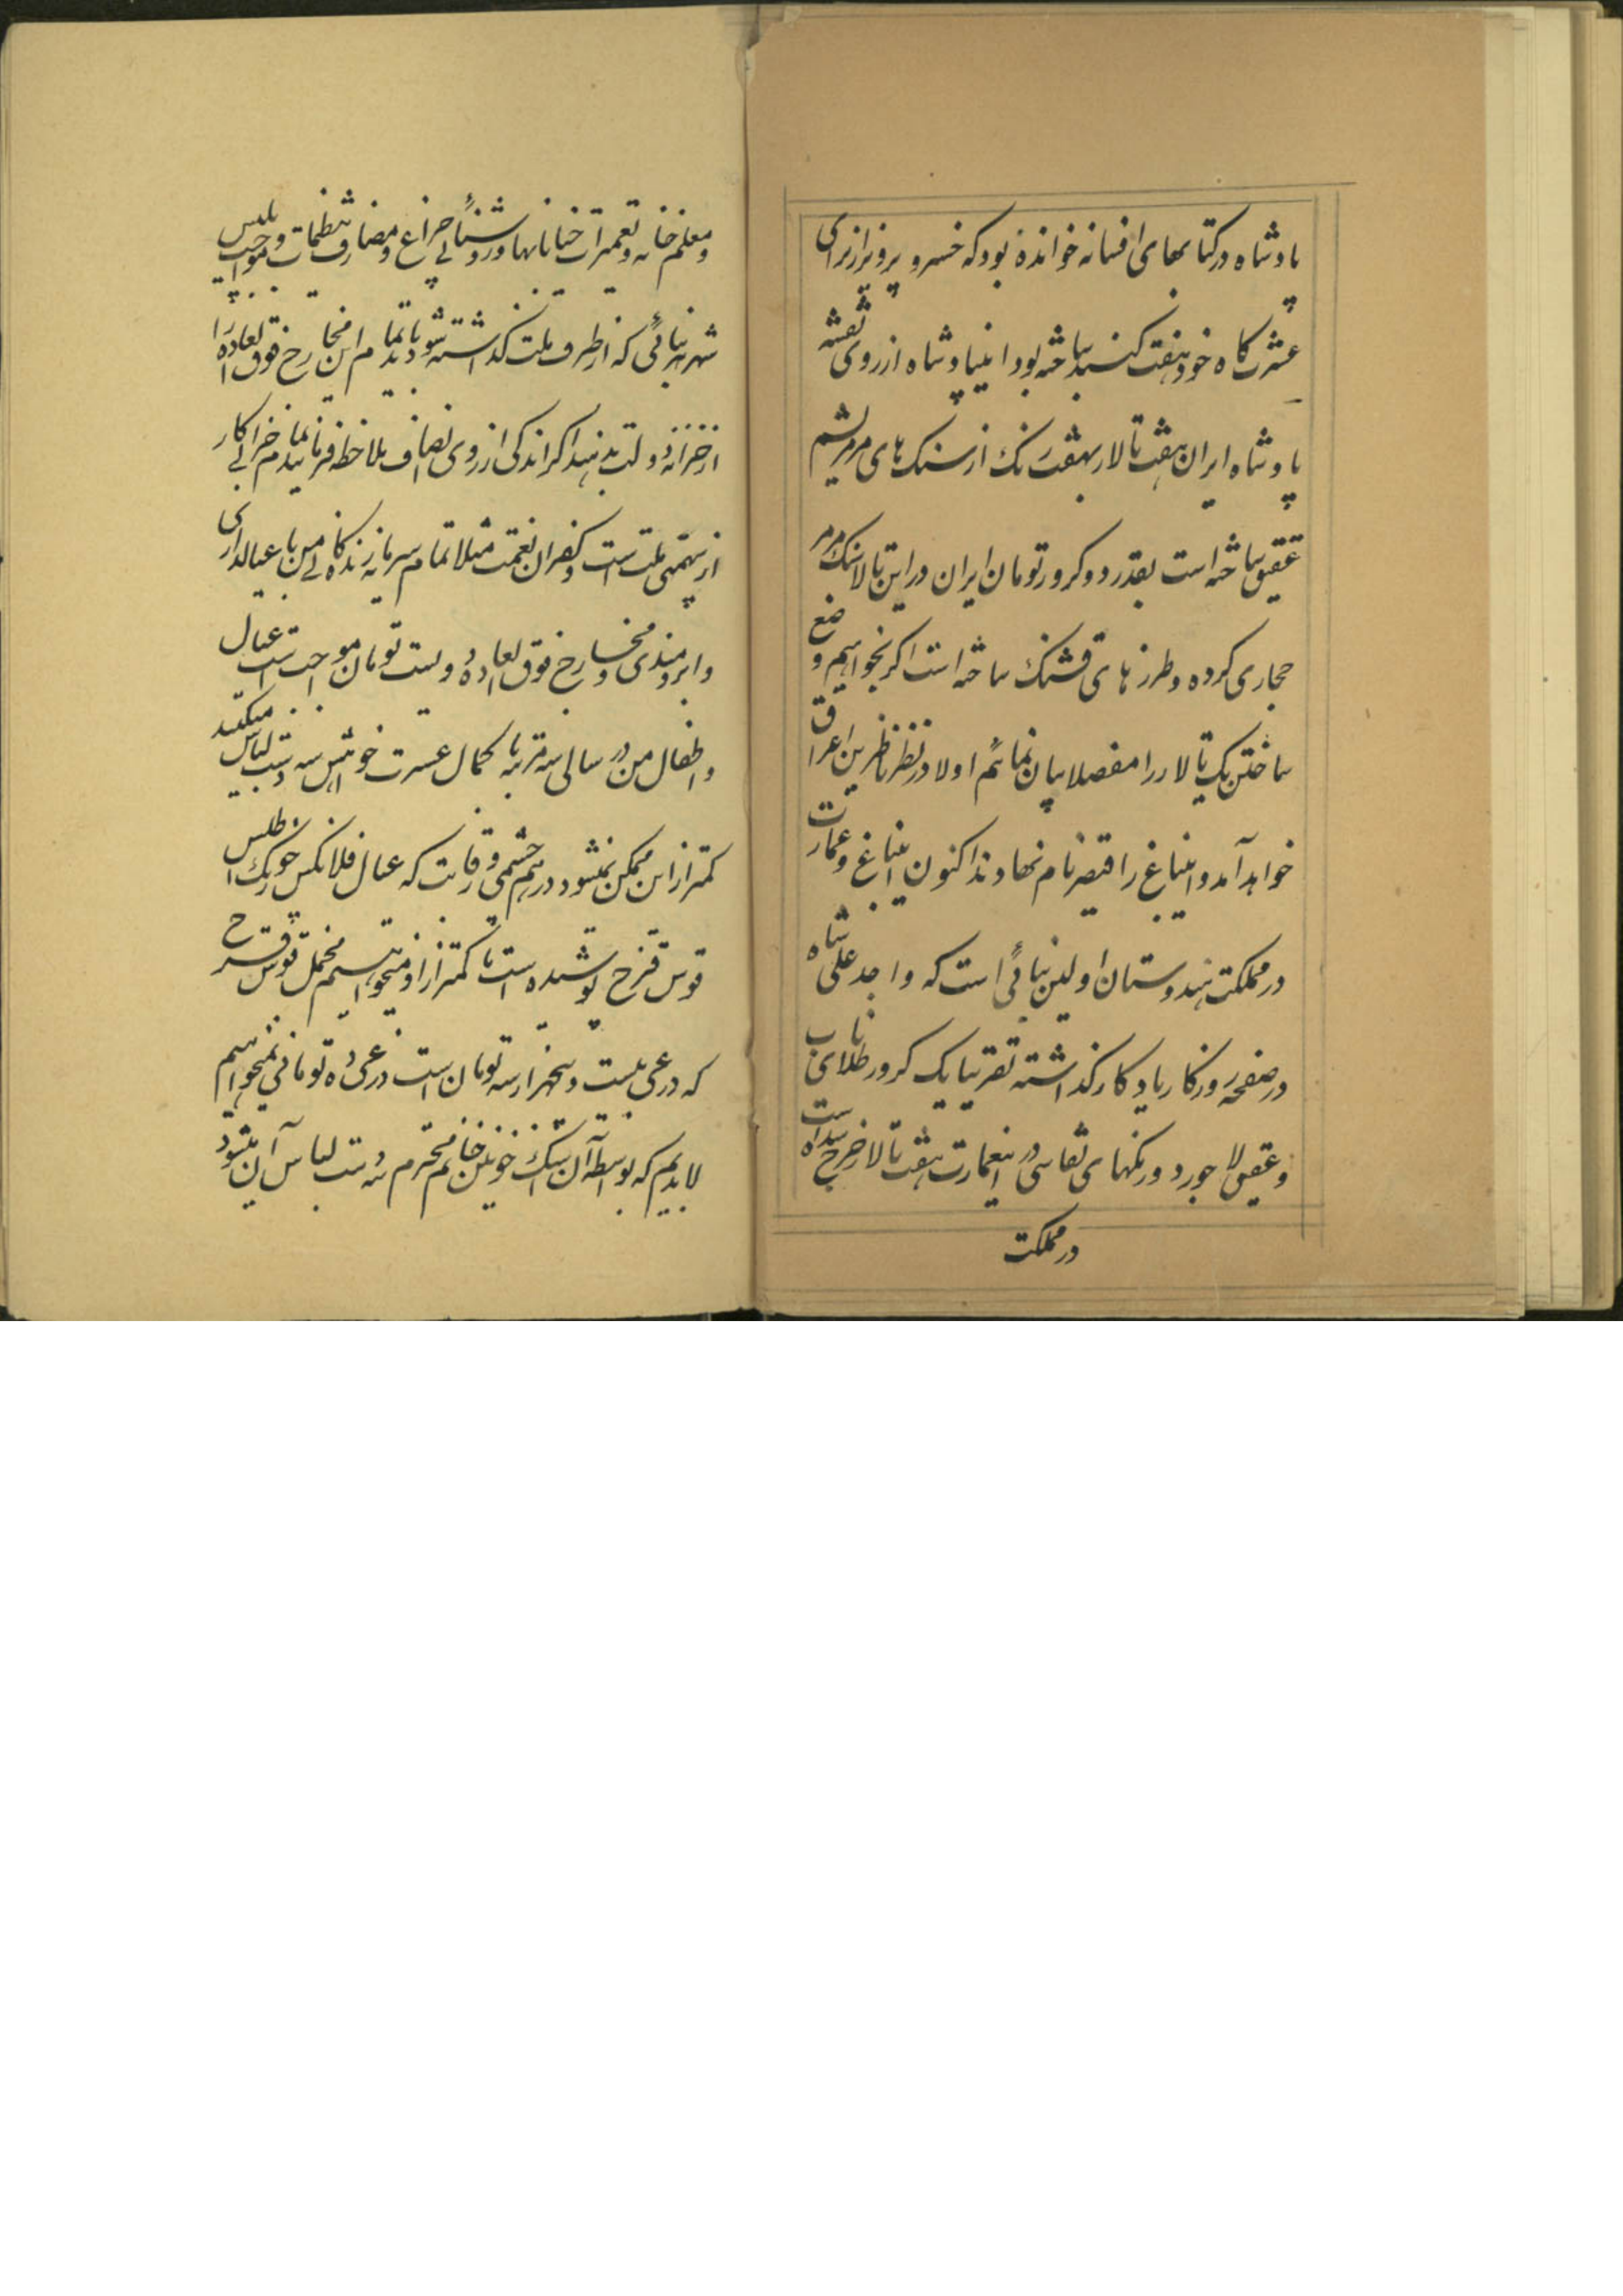 پادشاه در کتابهای افسانه خوانده بود که خسرو پرویز از برای
عشرتگاه خود هفت گنبد ساخته بود اینپادشاه از روی نقشه
پادشاه ایران هفت تالار بهفت رنگ از سنگ های مرمر یشم
عقیق ساخته است بقدر دو کرور تومان ایران در این تالار سنگ مرمر
حجاری کرده و طرز های قشنگ ساخته است اگر بخواهیم وضع
ساختن یک تالار را مفصلا بیان نمائیم اولا در نظر ناظرین اغراق
خواهد آمد و اینباغ را قیصر نام نهادند اکنون اینباغ و عمارت
در مملکت هندوستان اولین بنائی است که واجد علی شاه
در صفحه روزگار یادگار گذاشته تقریبا یک کرور طلای ناب
و عقیق لاجورد و رنگهای نقاشی در اینعمارت هفت تالار خرج شده است
در مملکت
و معلم خانه و تعمیرات خیابانها و روشنائی چراغ و مصارف تنظیمات و مواجب پلیس
شهر بنائی که از طرف ملت گذاشته شود باید تمام این مخارج فوق العاده را
از خزانه دولت بدهند اگر اندکی از روی انصاف ملاحظه فرمائید تمام خرابی کار
از بیهمتی ملت است و کفران نعمت مثلا تمام سرمایه زندگانی من با عیالداری
و ابرومندی و مخارج فوق العاده دویست تومان مواجب است عیال
و اطفال من در سالی سه مرتبه با کمال عسرت خواهش سه دست لباس میکنند
کمتر از این ممکن نمیشود در هم چشمی و رقابت که عیال فلانکس خورنک اطلس
قوس قزح پوشیده است ما کمتر از او نمیخواهیم مخمل قوس قزح
که ذرعی بیست و پنجهزار سه تومان است ذرعی ده تومانی نمیخواهیم
لابدیم که بواسطه آن اشک خونین خانم محترم سه دست لباس آن میشود